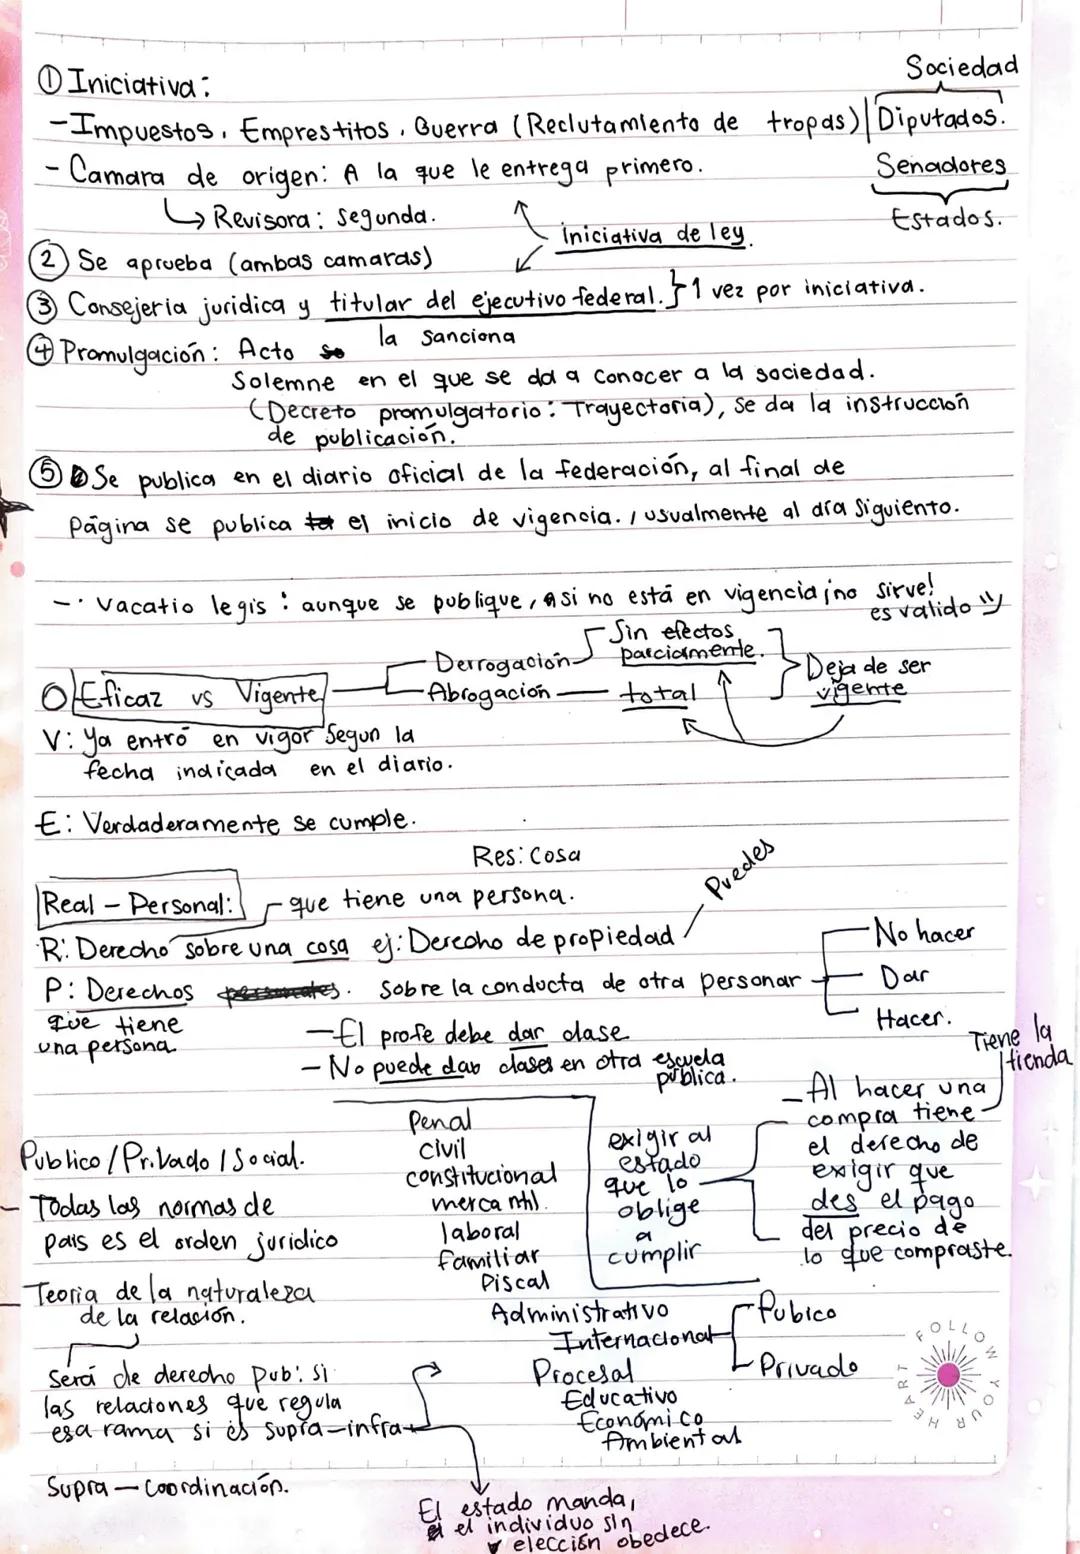 Sociedad
① Iniciativa:
-Impuestos, Emprestitos, Guerra (Reclutamiento de tropas) | Diputados.
- Camara de origen: A la que le entrega primero.
Senadores
↳ Revisora: segunda.
Estados.
iniciativa de ley.
② Se aprueba (ambas camaras)
③ Consejeria juridica y titular del ejecutivo federal. } 1 vez por iniciativa.
la sanciona
④ Promulgación: Acto
Solemne en el que se da a conocer a la sociedad.
(Decreto promulgatorio: Trayectoria), se da la instrucción
de publicación.
⑤ Se publica en el diario oficial de la federación, al final de
Página se publica el inicio de vigencia. / usualmente al día siguiente.
-· Vacatio legis: aunque se publique, si no está en vigencia ¡no sirve!
es valido
Sin efectos
parcialmente.
Derrogación
Deja de ser
vigente
O Eficaz vs Vigente
Abrogación — total
V: Ya entró en vigor Segun la
fecha indicada en el diario.
E: Verdaderamente se cumple.
Res: Cosa
Puedes
Real - Personal:
que tiene una persona.
R: Derecho sobre una cosa ej: Derecho de propiedad
No hacer
P: Derechos personales. sobre la conducta de otra personar
Dar
Que tiene
una persona
Hacer.
-El profe debe dar clase
- No puede dar clases en otra escuela
pública.
Tiene la
tienda
- Al hacer una
compra tiene
el derecho de
exigir que
des el pago
del precio de
lo que compraste.
exigir al
estado
que lo
oblige
a
cumplir
Penal
civil
constitucional
mercantil.
laboral
familiar
Fiscal
Administrativo
Internacional
Pubico
Privado
Procesal
Educativo
Económico
Ambiental
Publico / Privado / Social.
- Todas las normas de
pais es el orden juridico
- Teoria de la naturaleza
de la relación.
Será de derecho pub: si
las relaciones que regula
esa rama si es supra-infra
Supra - Coordinación.
El estado manda,
el individuo sin
elección obedece.
FOLLOW YOUR HEART